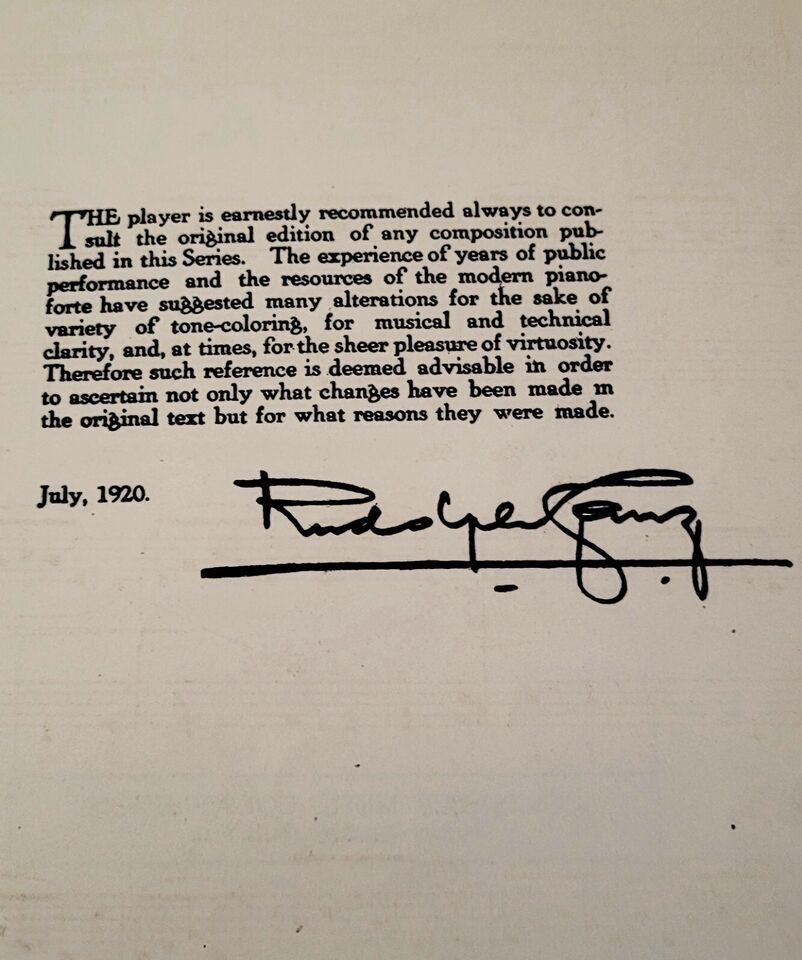 THE player is earnestly recommended always to con-
sult the original edition of any composition pub-
lished in this Series. The experience of years of public
performance and the resources of the modern piano-
forte have suggested many alterations for the sake of
variety of tone-coloring, for musical and technical
clarity, and, at times, for the sheer pleasure of virtuosity.
Therefore such reference is deemed advisable in order
to ascertain not only what changes have been made in
the original text but for what reasons they were made.
July, 1920.
Rudolph Ganz